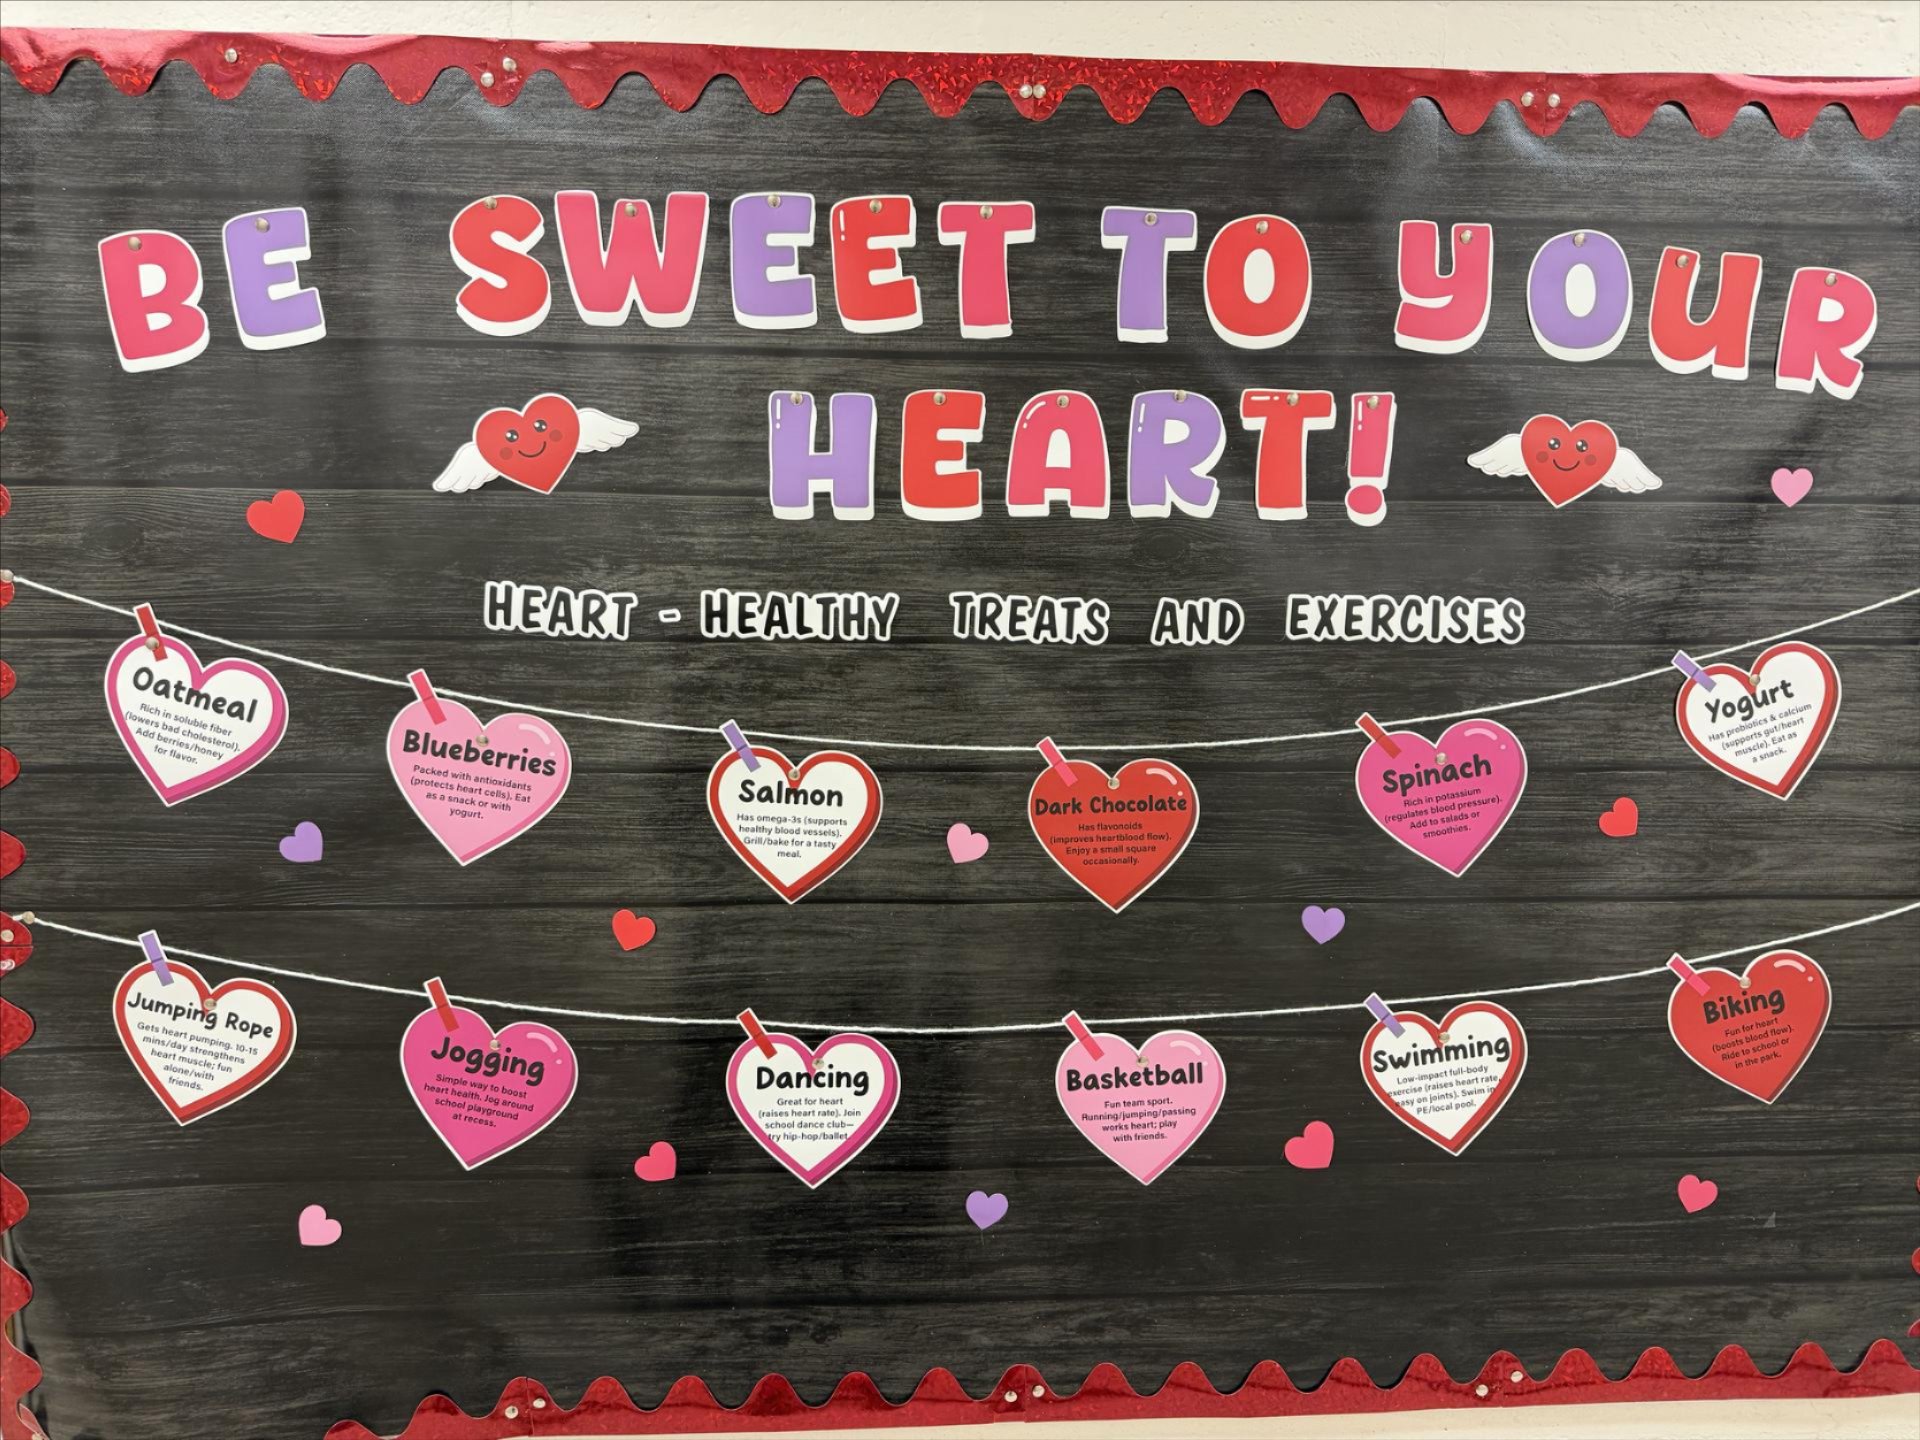 BE SWEET TO YOUR
HEART!
HEART - HEALTHY TREATS AND EXERCISES
Oatmeal
Rich in soluble fiber
(lowers bad cholesterol).
Add berries/honey
for flavor.
Blueberries
Packed with antioxidants
(protects heart cells). Eat
as a snack or with
yogurt.
Salmon
Has omega-3s (supports
healthy blood vessels).
Grill/bake for a tasty
meal.
Dark Chocolate
Has flavonoids
(improves heartblood flow).
Enjoy a small square
occasionally.
Spinach
Rich in potassium
(regulates blood pressure).
Add to salads or
smoothies.
Yogurt
Has probiotics & calcium
(supports gut/heart
muscle). Eat as
a snack.
Jumping Rope
Gets heart pumping. 10-15
mins/day strengthens
heart muscle; fun
alone/with
friends.
Jogging
Simple way to boost
heart health. Jog around
school playground
at recess.
Dancing
Great for heart
(raises heart rate). Join
school dance club—
try hip-hop/ballet.
Basketball
Fun team sport.
Running/jumping/passing
works heart; play
with friends.
Swimming
Low-impact full-body
exercise (raises heart rate,
easy on joints). Swim in
PE/local pool.
Biking
Fun for heart
(boosts blood flow).
Ride to school or
in the park.